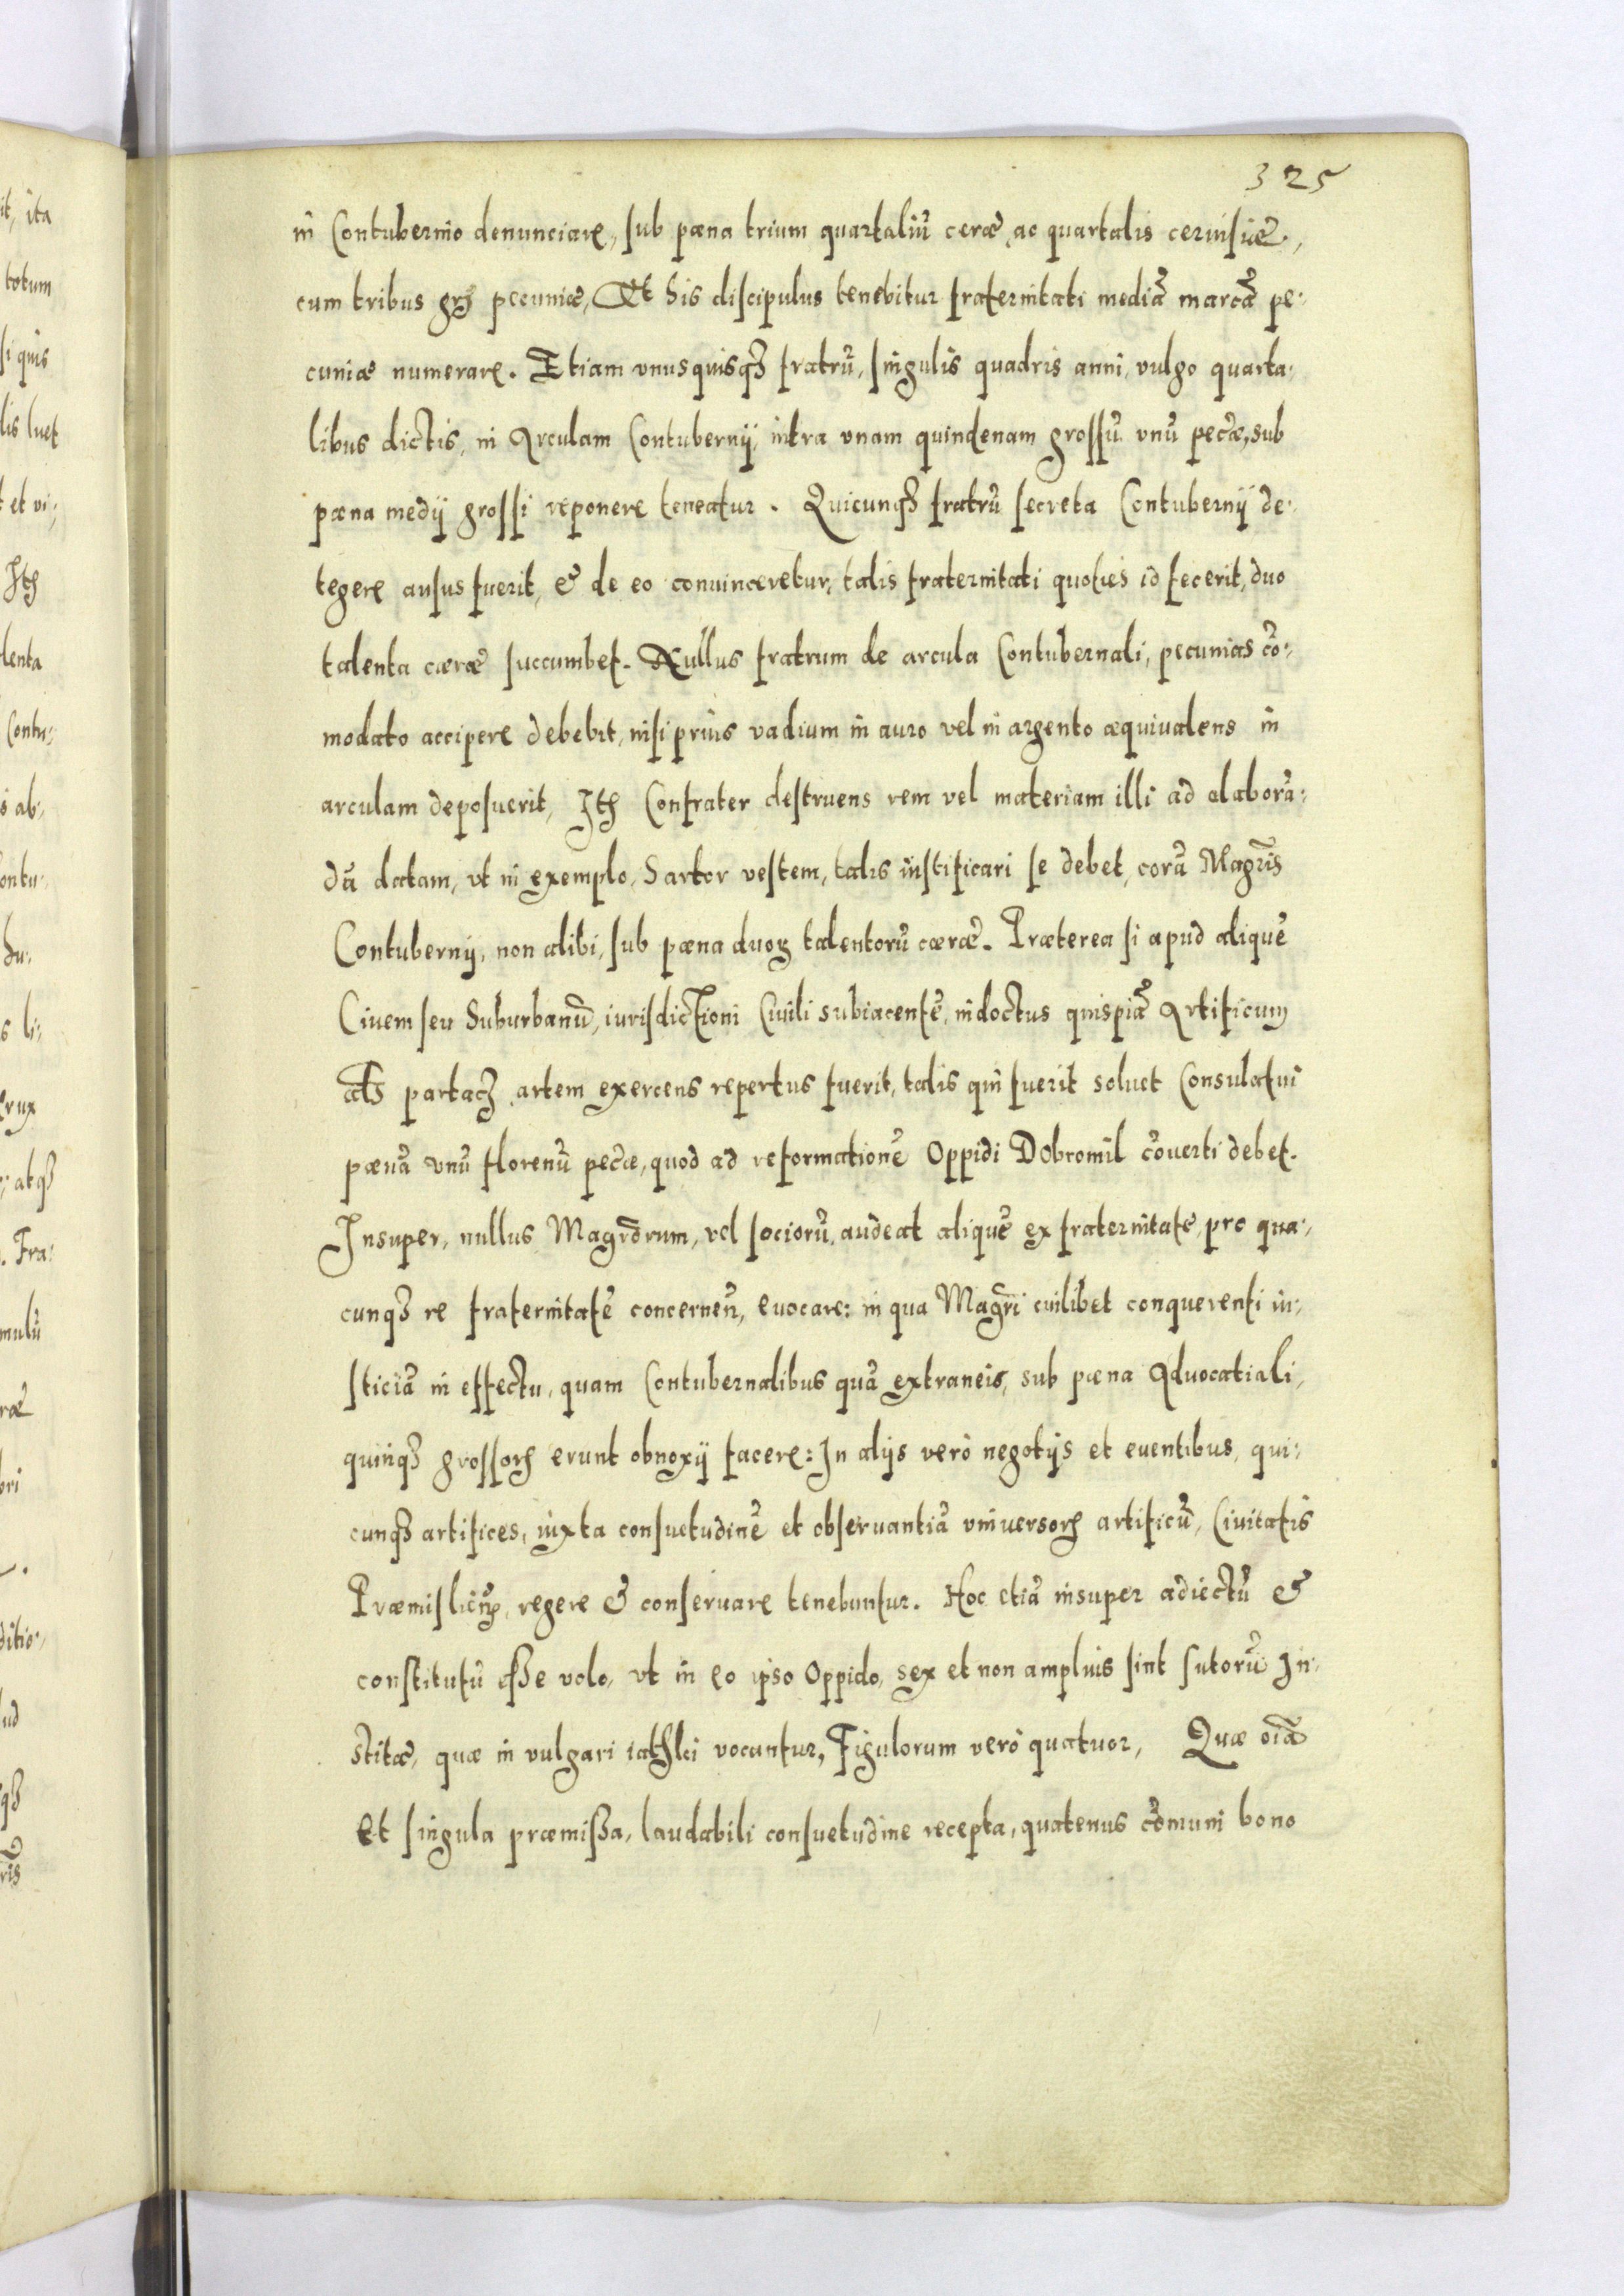 325
in Contubernio denunciare, sub pœna trium quartaliũ ceræ, ac quartalis ceruisiæ,
cum tribus grš pecuniæ, Et his discipulus tenebitur fraternitati mediã marcã pe:
cuniæ numerare. Etiam vnusquisqȝ fratrũ, singulis quadris anni, vulgo quarta:
libus dictis, in Arculam Contubernij, intra vnam quindenam grossũ vnũ pecæ, sub
pœna medij grossi reponere teneatur. Quicunqȝ fratrũ secreta Contubernij de:
tegere ausus fuerit, & de eo conuinceretur, talis fraternitati quoties id fecerit, duo
talenta cæræ succumbet. Nullus fratrum de arcula Contubernali, pecunias cõ:
modato accipere debebit, nisi prius vadium in auro vel in argento æquiualens in
arculam deposuerit, Itẽ Confrater destruens rem vel materiam illi ad alaborã:
dũ datam, vt in exemplo, Sartor vestem, talis iustificari se debet, corã Magrĩs
Contubernij, non alibi, sub pœna duoꝝ talentorũ cæræ. Præterea si apud aliquẽ
Ciuem seu Suburbanũ, iurisdictioni Ciuili subiacentẽ, indoctus quispiã Artificum
als partacȝ artem exercens repertus fuerit, talis qui fuerit soluet Consulatui
pœnã vnũ florenũ pecæ, quod ad reformationẽ Oppidi Dobromil cõuerti debet.
Insuper, nullus Magrõrum, vel sociorũ, audeat aliquẽ ex fraternitate, pro qua:
cunqȝ re fraternitatẽ concerneñ, euocare: in qua Magrĩ cuilibet conquerenti iu:
sticiã in effectu, quam Contubernalibus quã extraneis, sub pœna Aduocatiali,
quinqȝ grossorꝝ erunt obnoxij facere: In alijs verò negotijs et euentibus, qui:
cunqȝ artifices, iuxta consuetudinẽ et obseruantiã vniuersorꝝ artificũ, Ciuitatis
Præmislieñ, regere & conseruare tenebuntur. Hoc etiã insuper adiectũ &
constitutũ esse volo, vt in eo ipso Oppido, sex et non amplius sint sutorũ In:
stitæ, quæ in vulgari iathki vocuntur, Figulorum verò quatuor, Quæ oĩa
Et singula præmissa, laudabili consuetudine recepta, quatenus cõmuni bono